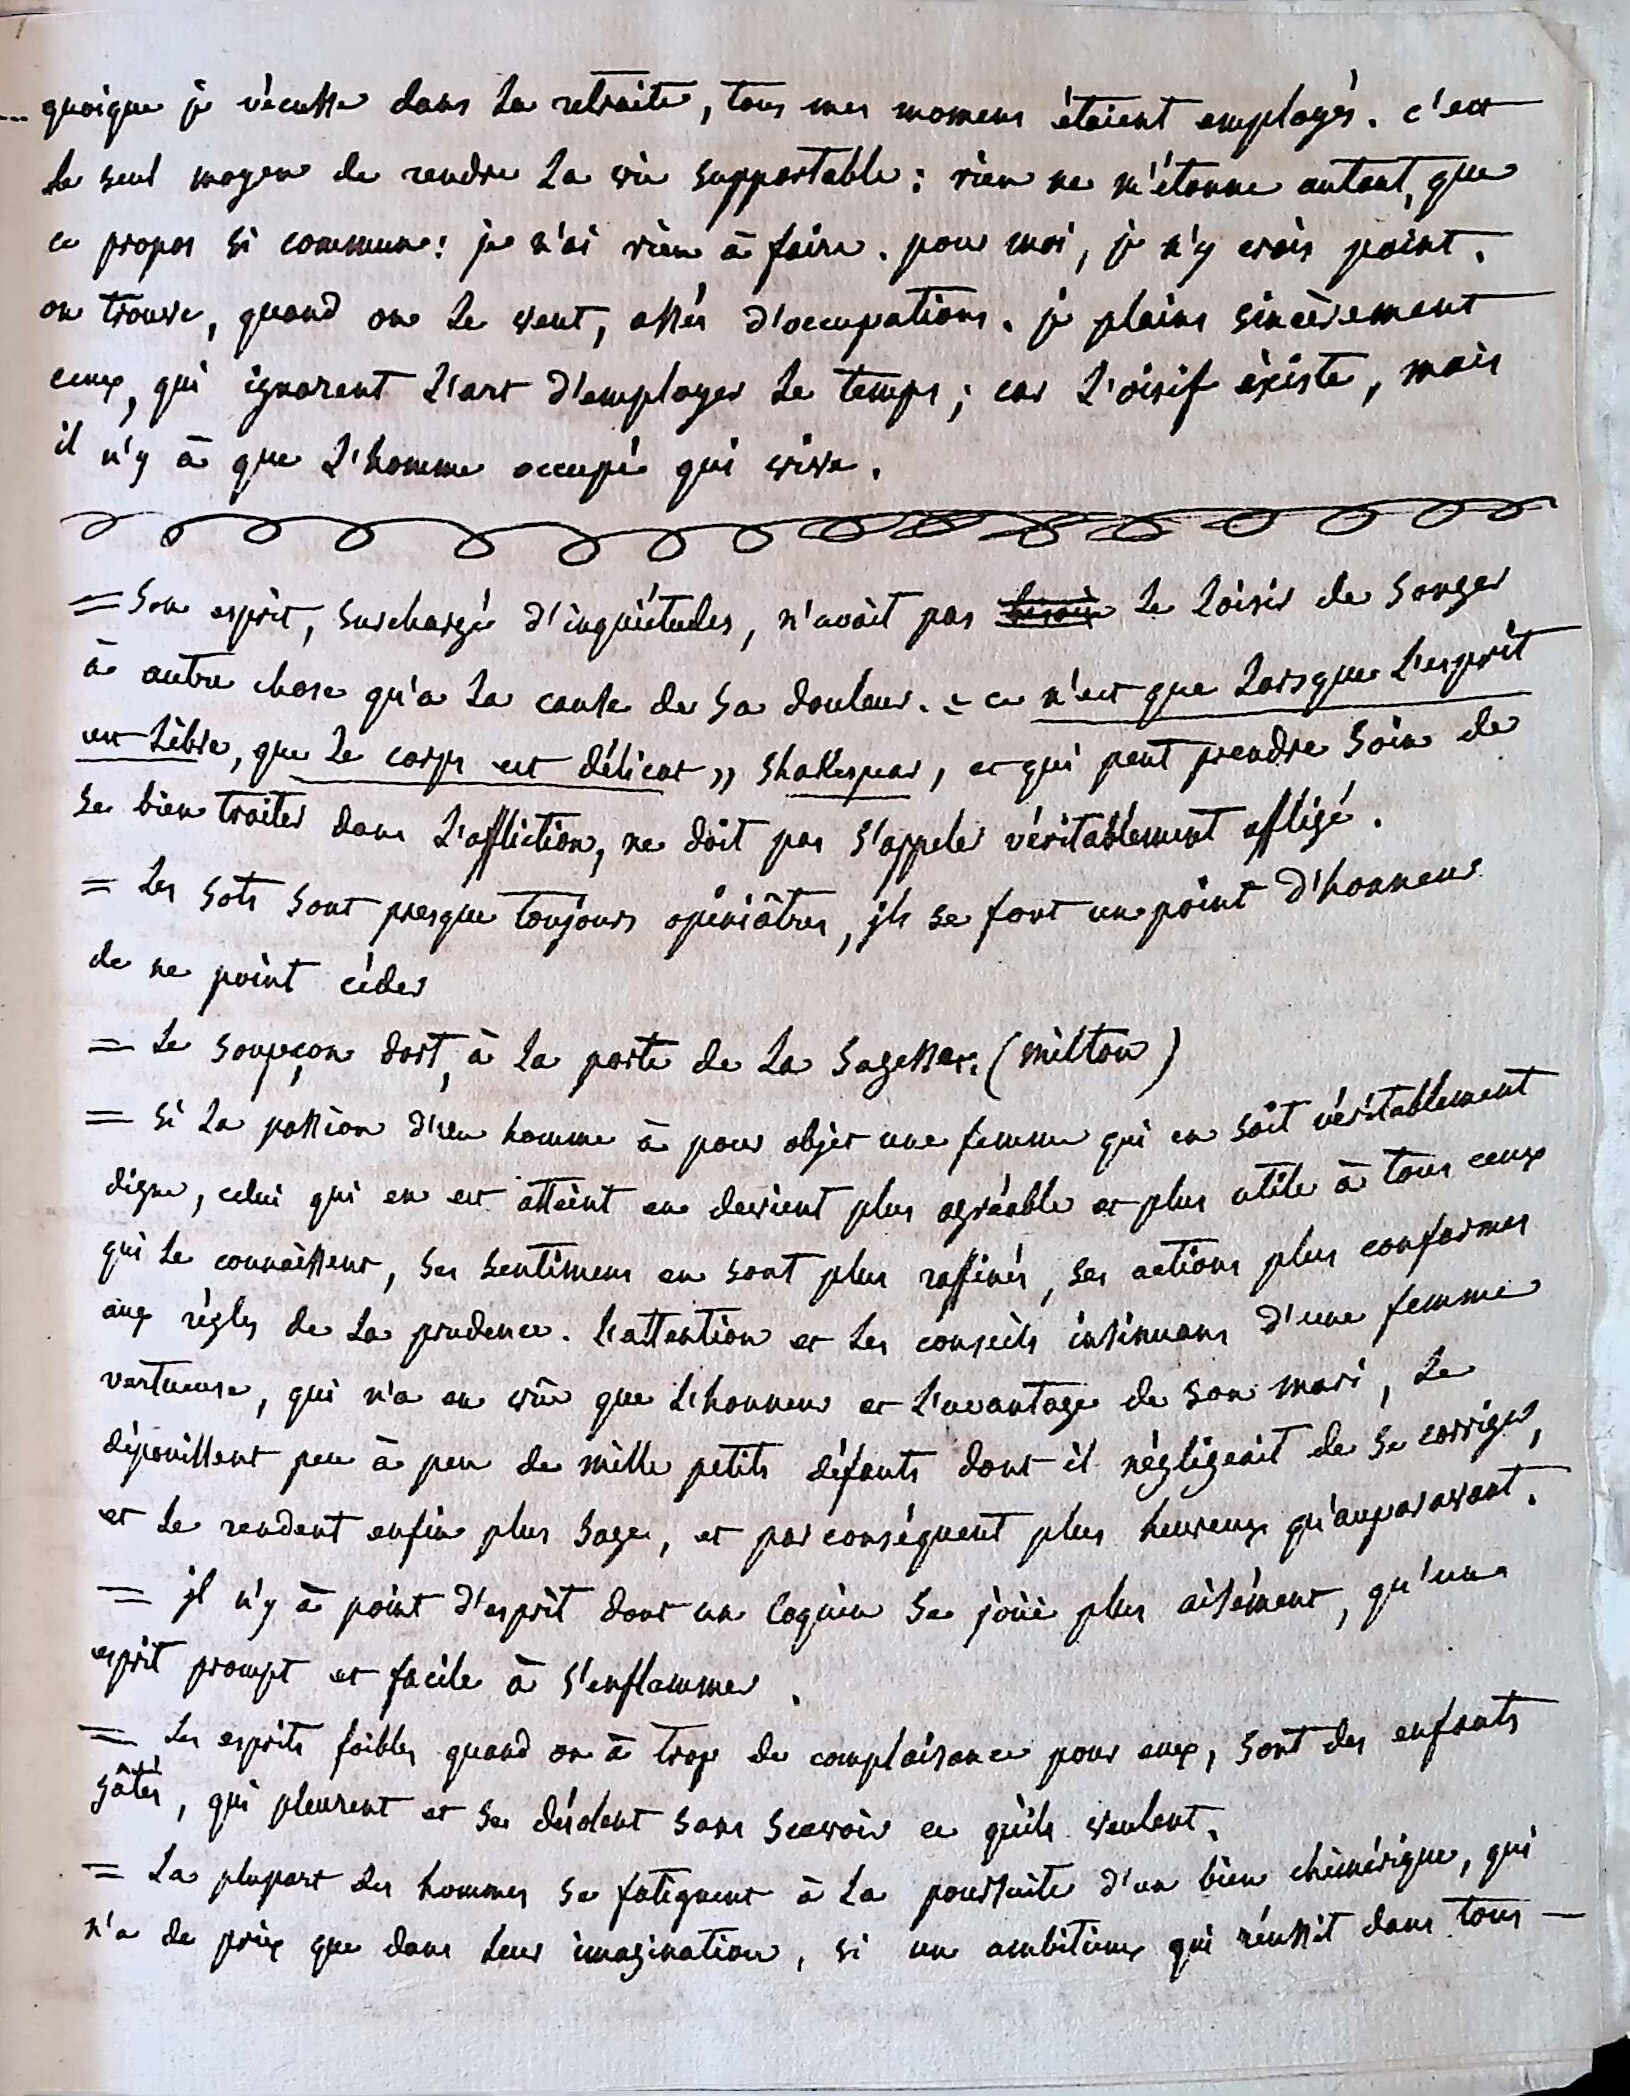 ... quoique je vécusse dans la retraite, tous mes momens étaient employés. c'est
le seul moyen de rendre la vie supportable : rien ne m'étonne autant, que
ce propos si commun : je n'ai rien à faire. pour moi, je n'y crois point.
on trouve, quand on le veut, assés d'occupations. je plains sincèrement
ceux, qui ignorent l'art d'employer le temps ; car l'oisif éxiste, mais
il n'y à que l'homme occupé qui vive.
= Son esprit, surchargé d'inquiétudes, n'avait pas besoin le loisir de songer
à autre chose qu'a la cause de sa douleur. « ce n'est que lorsque l'esprit
est libre, que le corps est délicat » shakespear, et qui peut prendre soin de
se bien traiter dans l'affliction, ne doit pas s'appeler véritablement affligé.
= les sots sont presque toujours opiniâtres, ils se font un point d'honneur
de ne point céder
= le soupçon dort, à la porte de la sagesse. (milton)
= si la passion d'un homme à pour objet une femme qui en soit véritablement
digne, celui qui en est atteint en devient plus agréable et plus utile à tous ceux
qui le connaissent, ses sentimens en sont plus raffinés, ses actions plus conformes
aux régles de la prudence. l'attention et les conseils insinuans d'une femme
vertueuse, qui n'a en vûe que l'honneur et l'avantage de son mari, le
dépouillent peu à peu de mille petits défauts dont il négligeait de se corriger,
et le rendent enfin plus sage, et par conséquent plus heureux qu'auparavant.
= il n'y à point d'esprit dont un coquin se joüe plus aisément, qu'un
esprit prompt et facile à s'enflammer.
= les esprits foibles quand on à trop de complaisance pour eux, sont des enfants
gâtés, qui pleurent et se désolent sans scavoir ce qu'ils veulent.
= la plupart des hommes se fatiguent à la poursuite d'un bien chimérique, qui
n'a de prix que dans leur imagination, si un ambitieux qui réussit dans tous